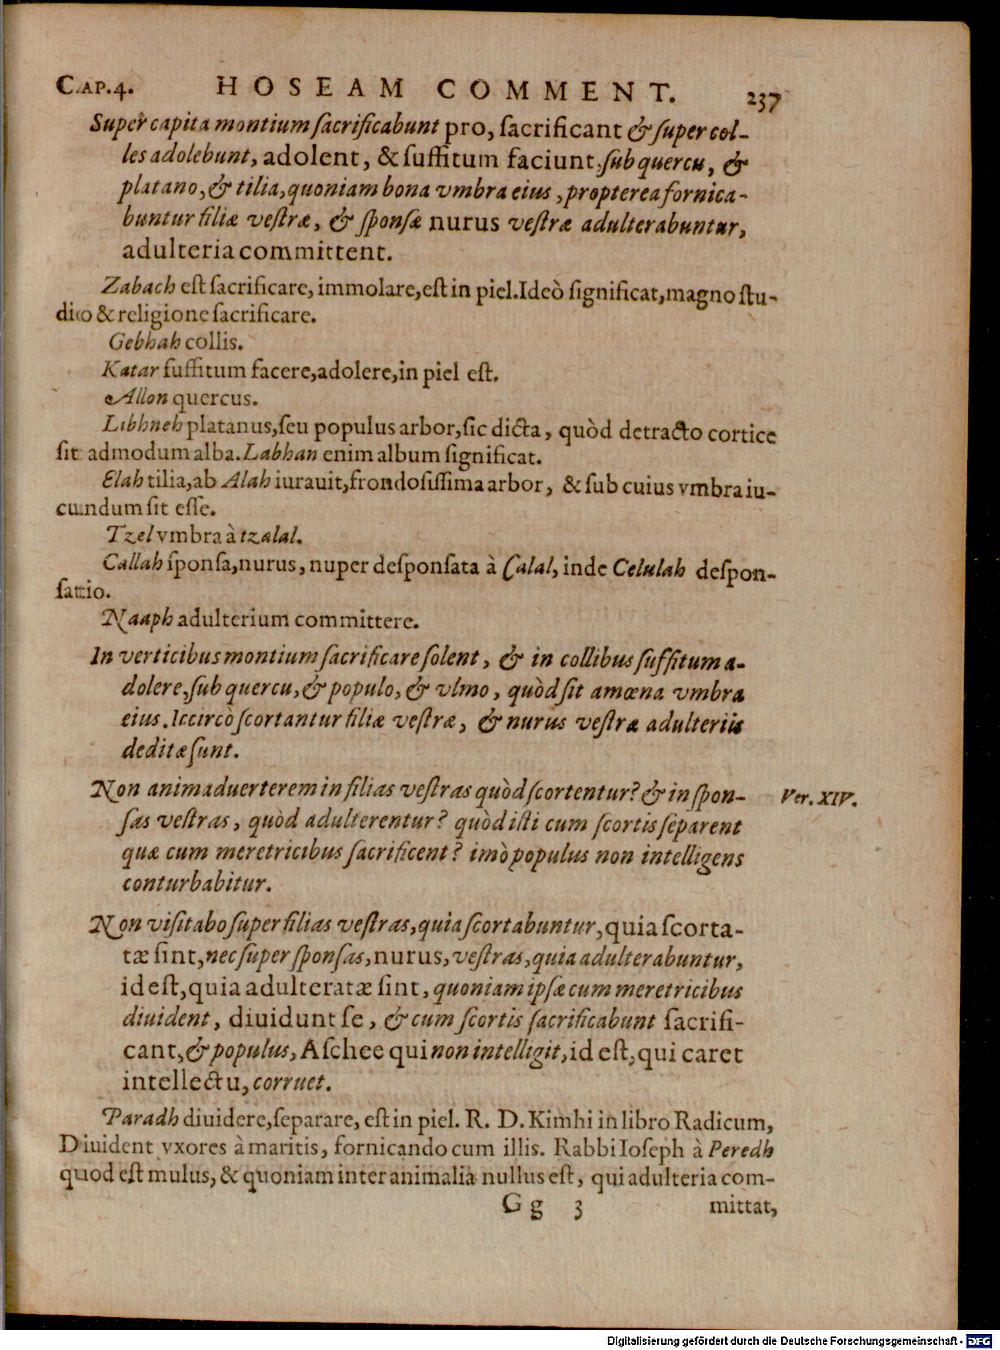 CAP.4. HOSEAM COMMENT. 237
Super capita montium ſacrificabunt pro, ſacrificant & ſuper col-
les adolebunt, adolent, & ſuffitum faciunt, ſub quercu, &
platano, & tilia, quoniam bona vmbra eius, propterea fornica-
buntur filiæ veſtræ, & ſponſæ nurus veſtræ adulterabuntur,
adulteria committent.
Zabach eſt ſacrificare, immolare, eſt in piel. Ideò ſignificat, magno ſtu-
dio & religione ſacrificare.
Gebhah collis.
Katar ſuffitum facere, adolere, in piel eſt.
Allon quercus.
Libhneh platanus, ſeu populus arbor, ſic dicta, quòd detracto cortice
ſit admodum alba. Labhan enim album ſignificat.
Elah tilia, ab Alah iurauit, frondoſiſſima arbor, & ſub cuius vmbra iu-
cundum ſit eſſe.
Tzel vmbra à tzalal.
Callah ſponſa, nurus, nuper deſponſata à Calal, inde Celulah deſpon-
ſatio.
Naaph adulterium committere.
In verticibus montium ſacrificare ſolent, & in collibus ſuffitum a-
dolere, ſub quercu, & populo, & vlmo, quòd ſit amœna vmbra
eius. Iccircò ſcortantur filiæ veſtræ, & nurus veſtræ adulteriis
deditæ ſunt.
Non animaduerterem in filias veſtras quòd ſcortentur? & in ſpon- Ver. XIV.
ſas veſtras, quòd adulterentur? quòd iſti cum ſcortis ſeparent
quæ cum meretricibus ſacrificent? imò populus non intelligens
conturbabitur.
Non viſitabo ſuper filias veſtras, quia ſcortabuntur, quia ſcorta-
tæ ſint, nec ſuper ſponſas, nurus, veſtras, quia adulterabuntur,
id eſt, quia adulteratæ ſint, quoniam ipſæ cum meretricibus
diuident, diuidunt ſe, & cum ſcortis ſacrificabunt ſacrifi-
cant, & populus, Aſchee qui non intelligit, id eſt, qui caret
intellectu, corruet.
Paradh diuidere, ſeparare, eſt in piel. R. D. Kimhi in libro Radicum,
Diuident vxores à maritis, fornicando cum illis. Rabbi Ioſeph à Peredh
quod eſt mulus, & quoniam inter animalia nullus eſt, qui adulteria com-
Gg 3 mittat,
Digitalisierung gefördert durch die Deutsche Forschungsgemeinschaft - DFG